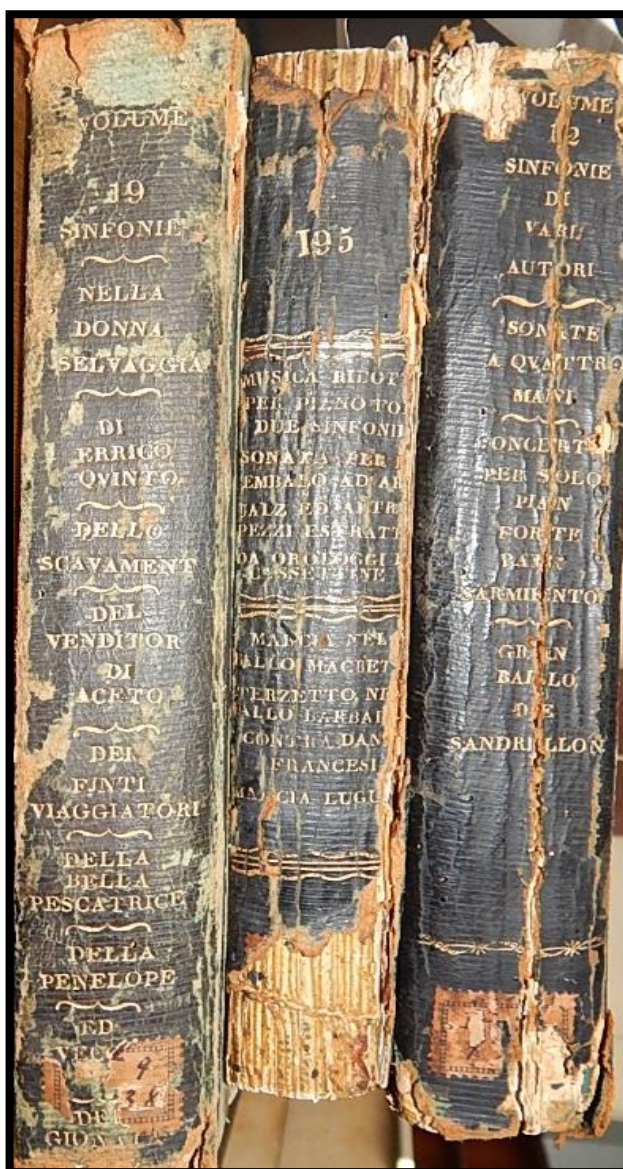 VOLUME
19
SINFONIE
NELLA
DONNA
SELVAGGIA
DI
ERRIGO
QVINTO
DELLO
SCAVAMENT
DEL
VENDITOR
DI
ACETO
DEI
FINTI
VIAGGIATORI
DELLA
BELLA
PESCATRICE
DELLA
PENELOPE
ED
VECC
4
38
DEL
GIONATA
195
MUSICA RIDOT
PER PIANO FO
DUE SINFONIE
SONATA PER
EMBALO AD AR
VALZ ED ALTRI
PEZZI ESTRATT
DA OROLOGGI
MARCIA NEL
BALLO MACBET
TERZETTO NE
BALLO BARBA
CONTRA DAN
FRANCESI
MARCIA LUGU
VOLUME
12
SINFONIE
DI
VARII
AUTORI
SONATE
A QVATTRO
MANI
CONCERT
PER SOLO
PIAN
FORTE
SARMIENTO
GRAN
BALLO
DE
SANDRILLON